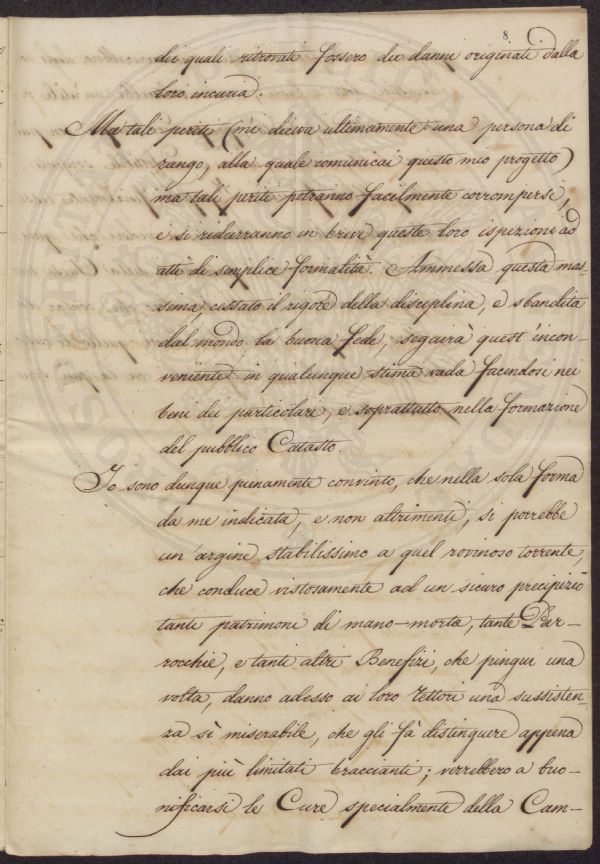 8
dei quali ritrovati fossero dei danni originati dalla
loro incuria.
Ma tali periti (mi diceva ultimamente una persona di
rango, alla quale comunicai questo mio progetto)
ma tali periti potranno facilmente corrompersi,
e si ridurranno in breve queste loro ispezioni ad
atti di semplice formalità. Ammessa questa mas-
sima, cessato il rigore della disciplina, e sbandita
dal mondo la buona fede, seguirà quest'incon-
veniente in qualunque stima vada facendosi nei
beni dei particolari, e soprattutto nella formazione
del pubblico Catasto.
Io sono dunque pienamente convinto, che nella sola forma
da me indicata, e non altrimenti, si porrebbe
un'argine stabilissimo a quel rovinoso torrente,
che conduce vistosamente ad un sicuro precipizio
tanti patrimoni di mano-morta, tante Par-
rocchie, e tanti altri Benefizi, che pingui una
volta, danno adesso ai loro Rettori una sussisten-
za sì miserabile, che gli fà distinguere appena
dai più limitati braccianti; verrebbero a buo-
nificarsi le Cure specialmente della Cam-